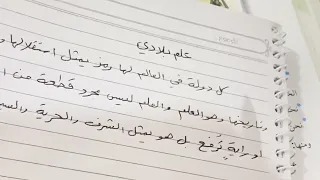 علم بلادي
كل دولة في العالم لها رمز يمثل استقلالها و
وتاريخها وهو العلم والعلم ليس مجرد قطعة من ا
او راية تُرفع بل هو يمثل الشرف والحرية والسي